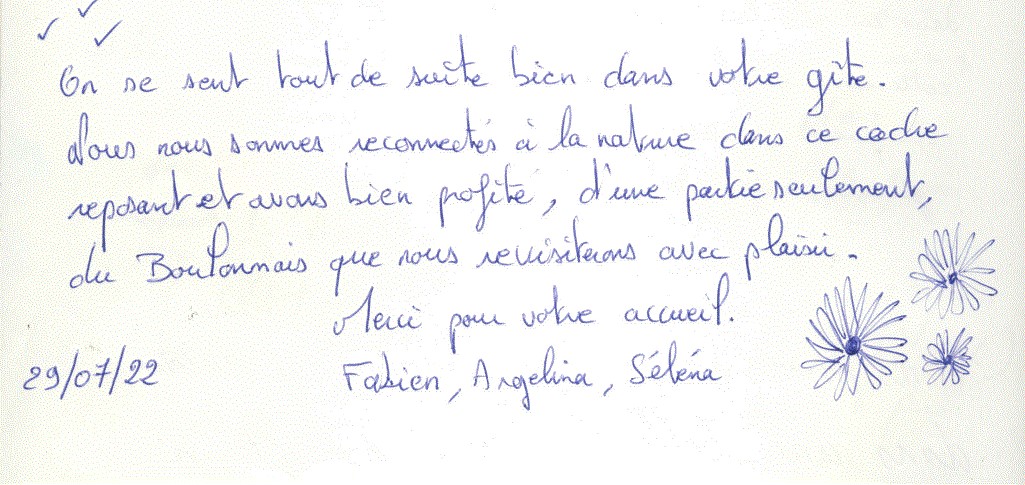 On se sent tout de suite bien dans votre gîte.
Nous nous sommes reconnectés à la nature dans ce cadre
reposant et avons bien profité, d'une partie seulement,
du Boulonnais que nous revisiterons avec plaisir.
Merci pour votre accueil.
29/07/22 Fabien, Angelina, Séléna